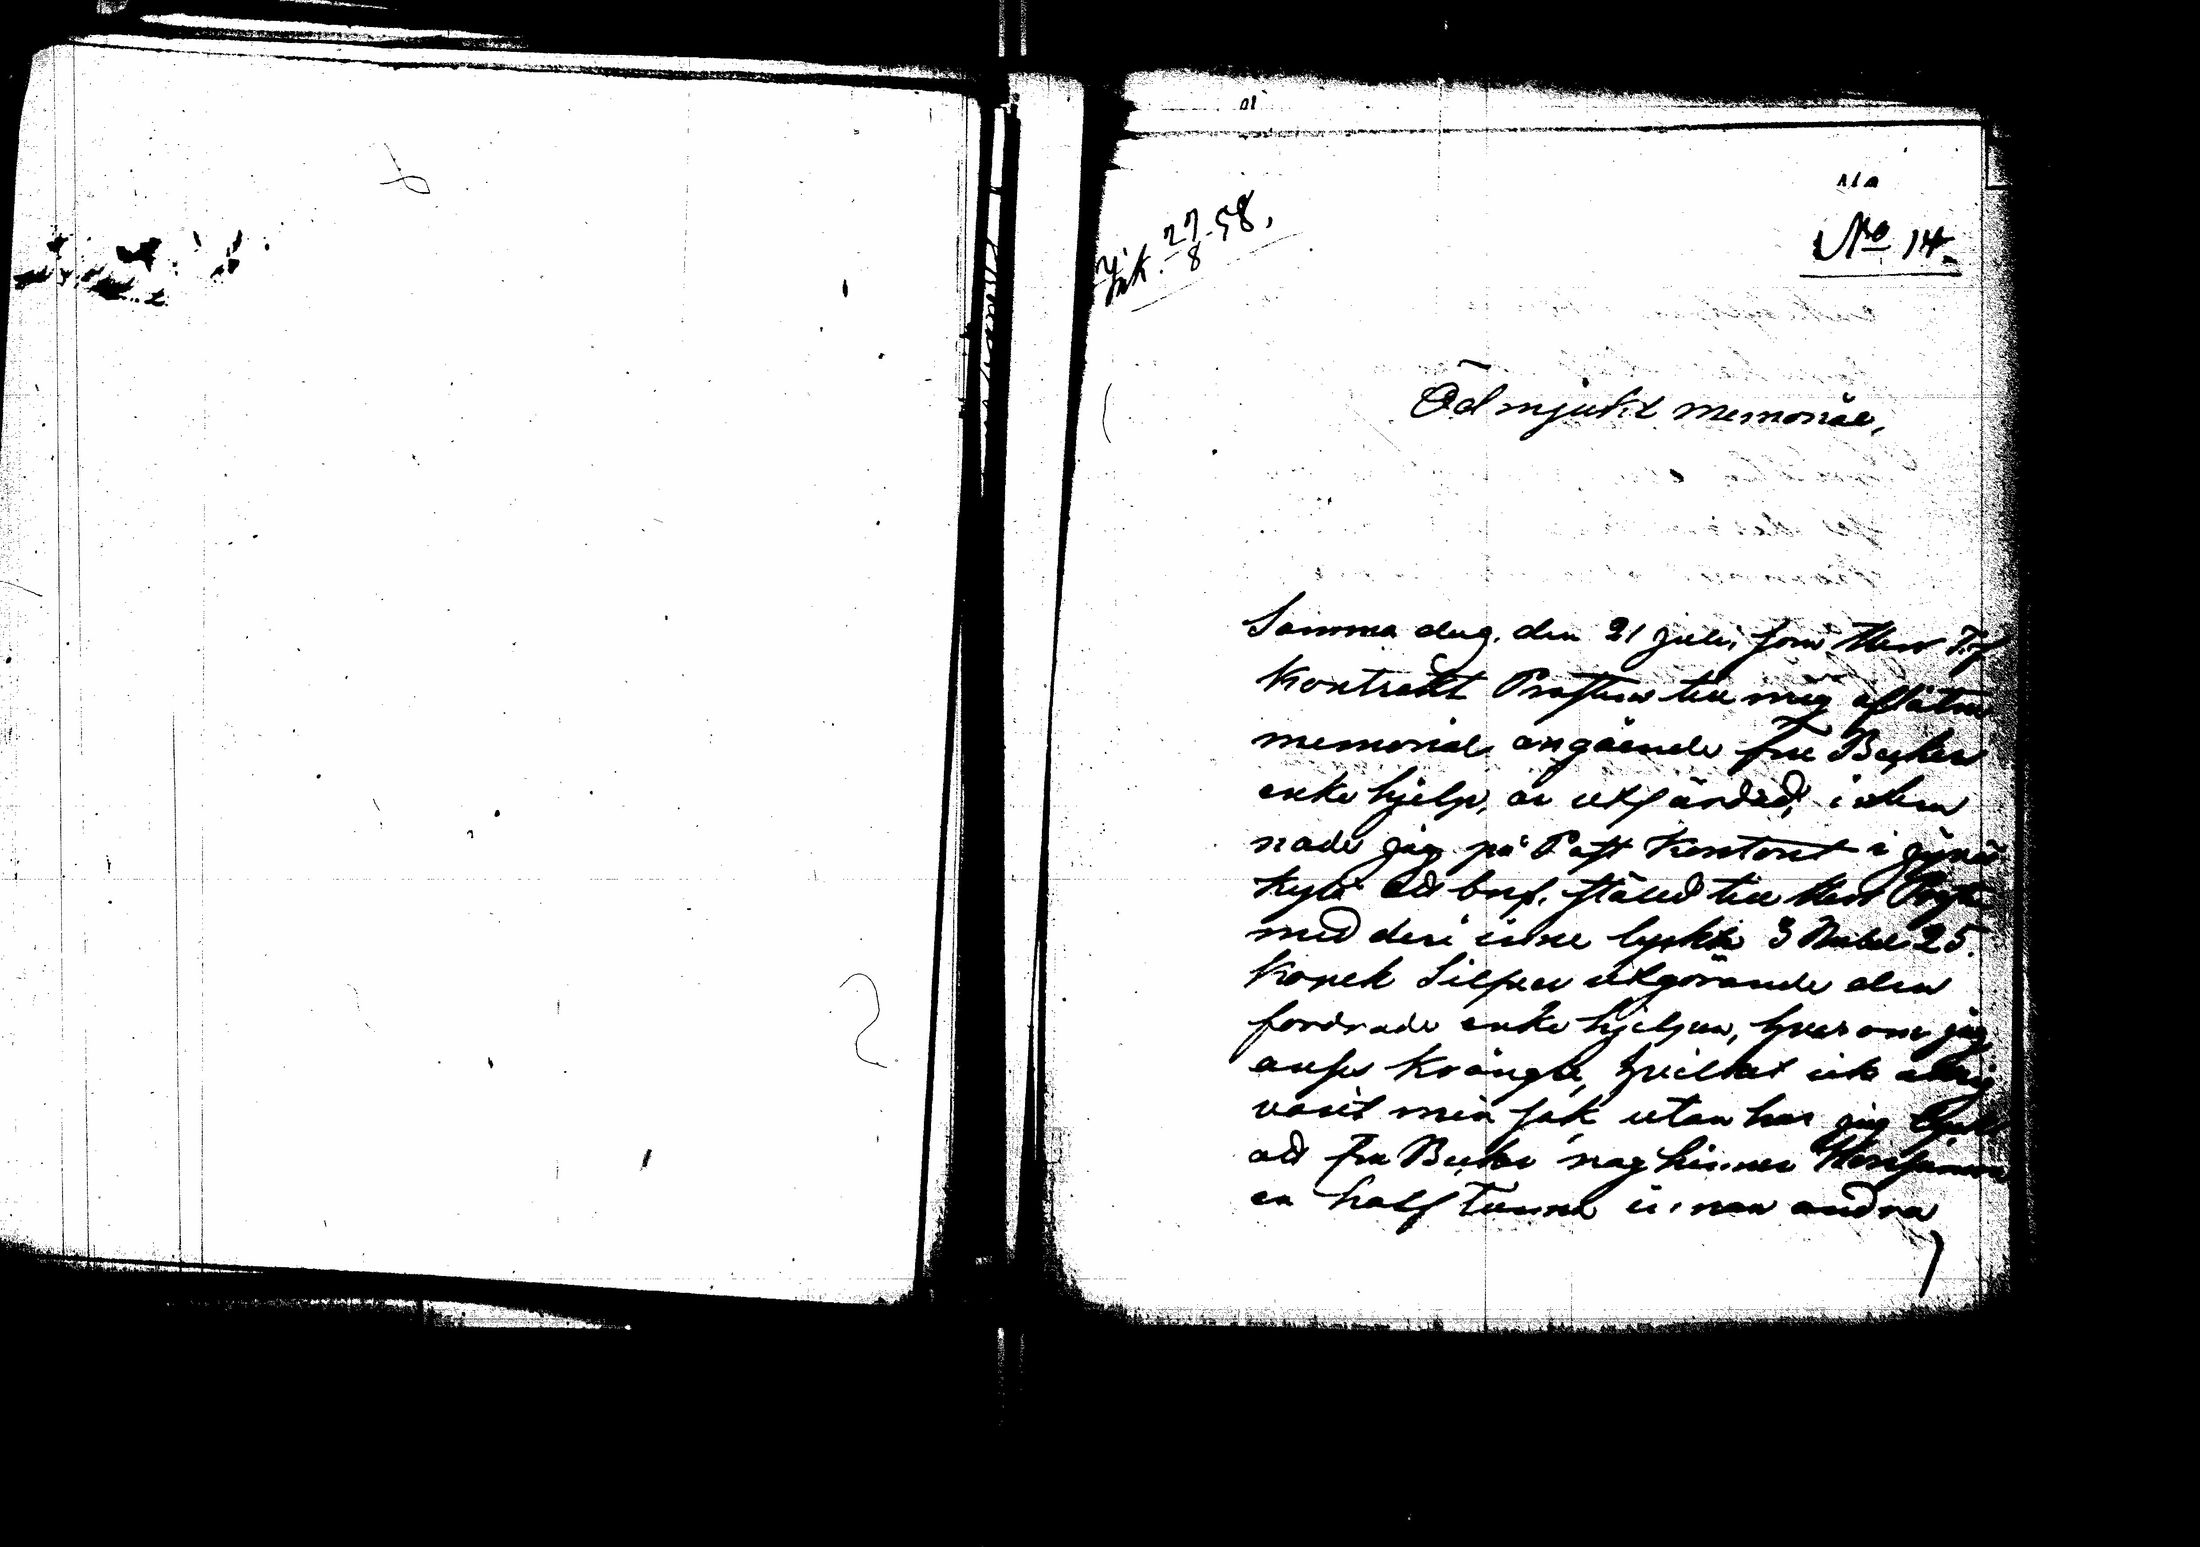 No 14.
Ink. 27/8 58.
Ödmjukt memorial,
Samma dag, den 21 juli, som Herr
Kontrakt Prosten till mig aflåtne
memorial angående fru Becker
enke hjelp, är utfärdad, inlem
nade jag på Post Kontoret i Jyväs
kylä ett bref, stäldt till Herr Prosten
med deri inne lyckte 3 Rubel 25
Kopek Silfver utgörande den
fordrade enke hjelpen, hvarom jag
anses krångla, hvilket icke
varit min sak utan har jag
att fru Becker
en half tunna innan andra